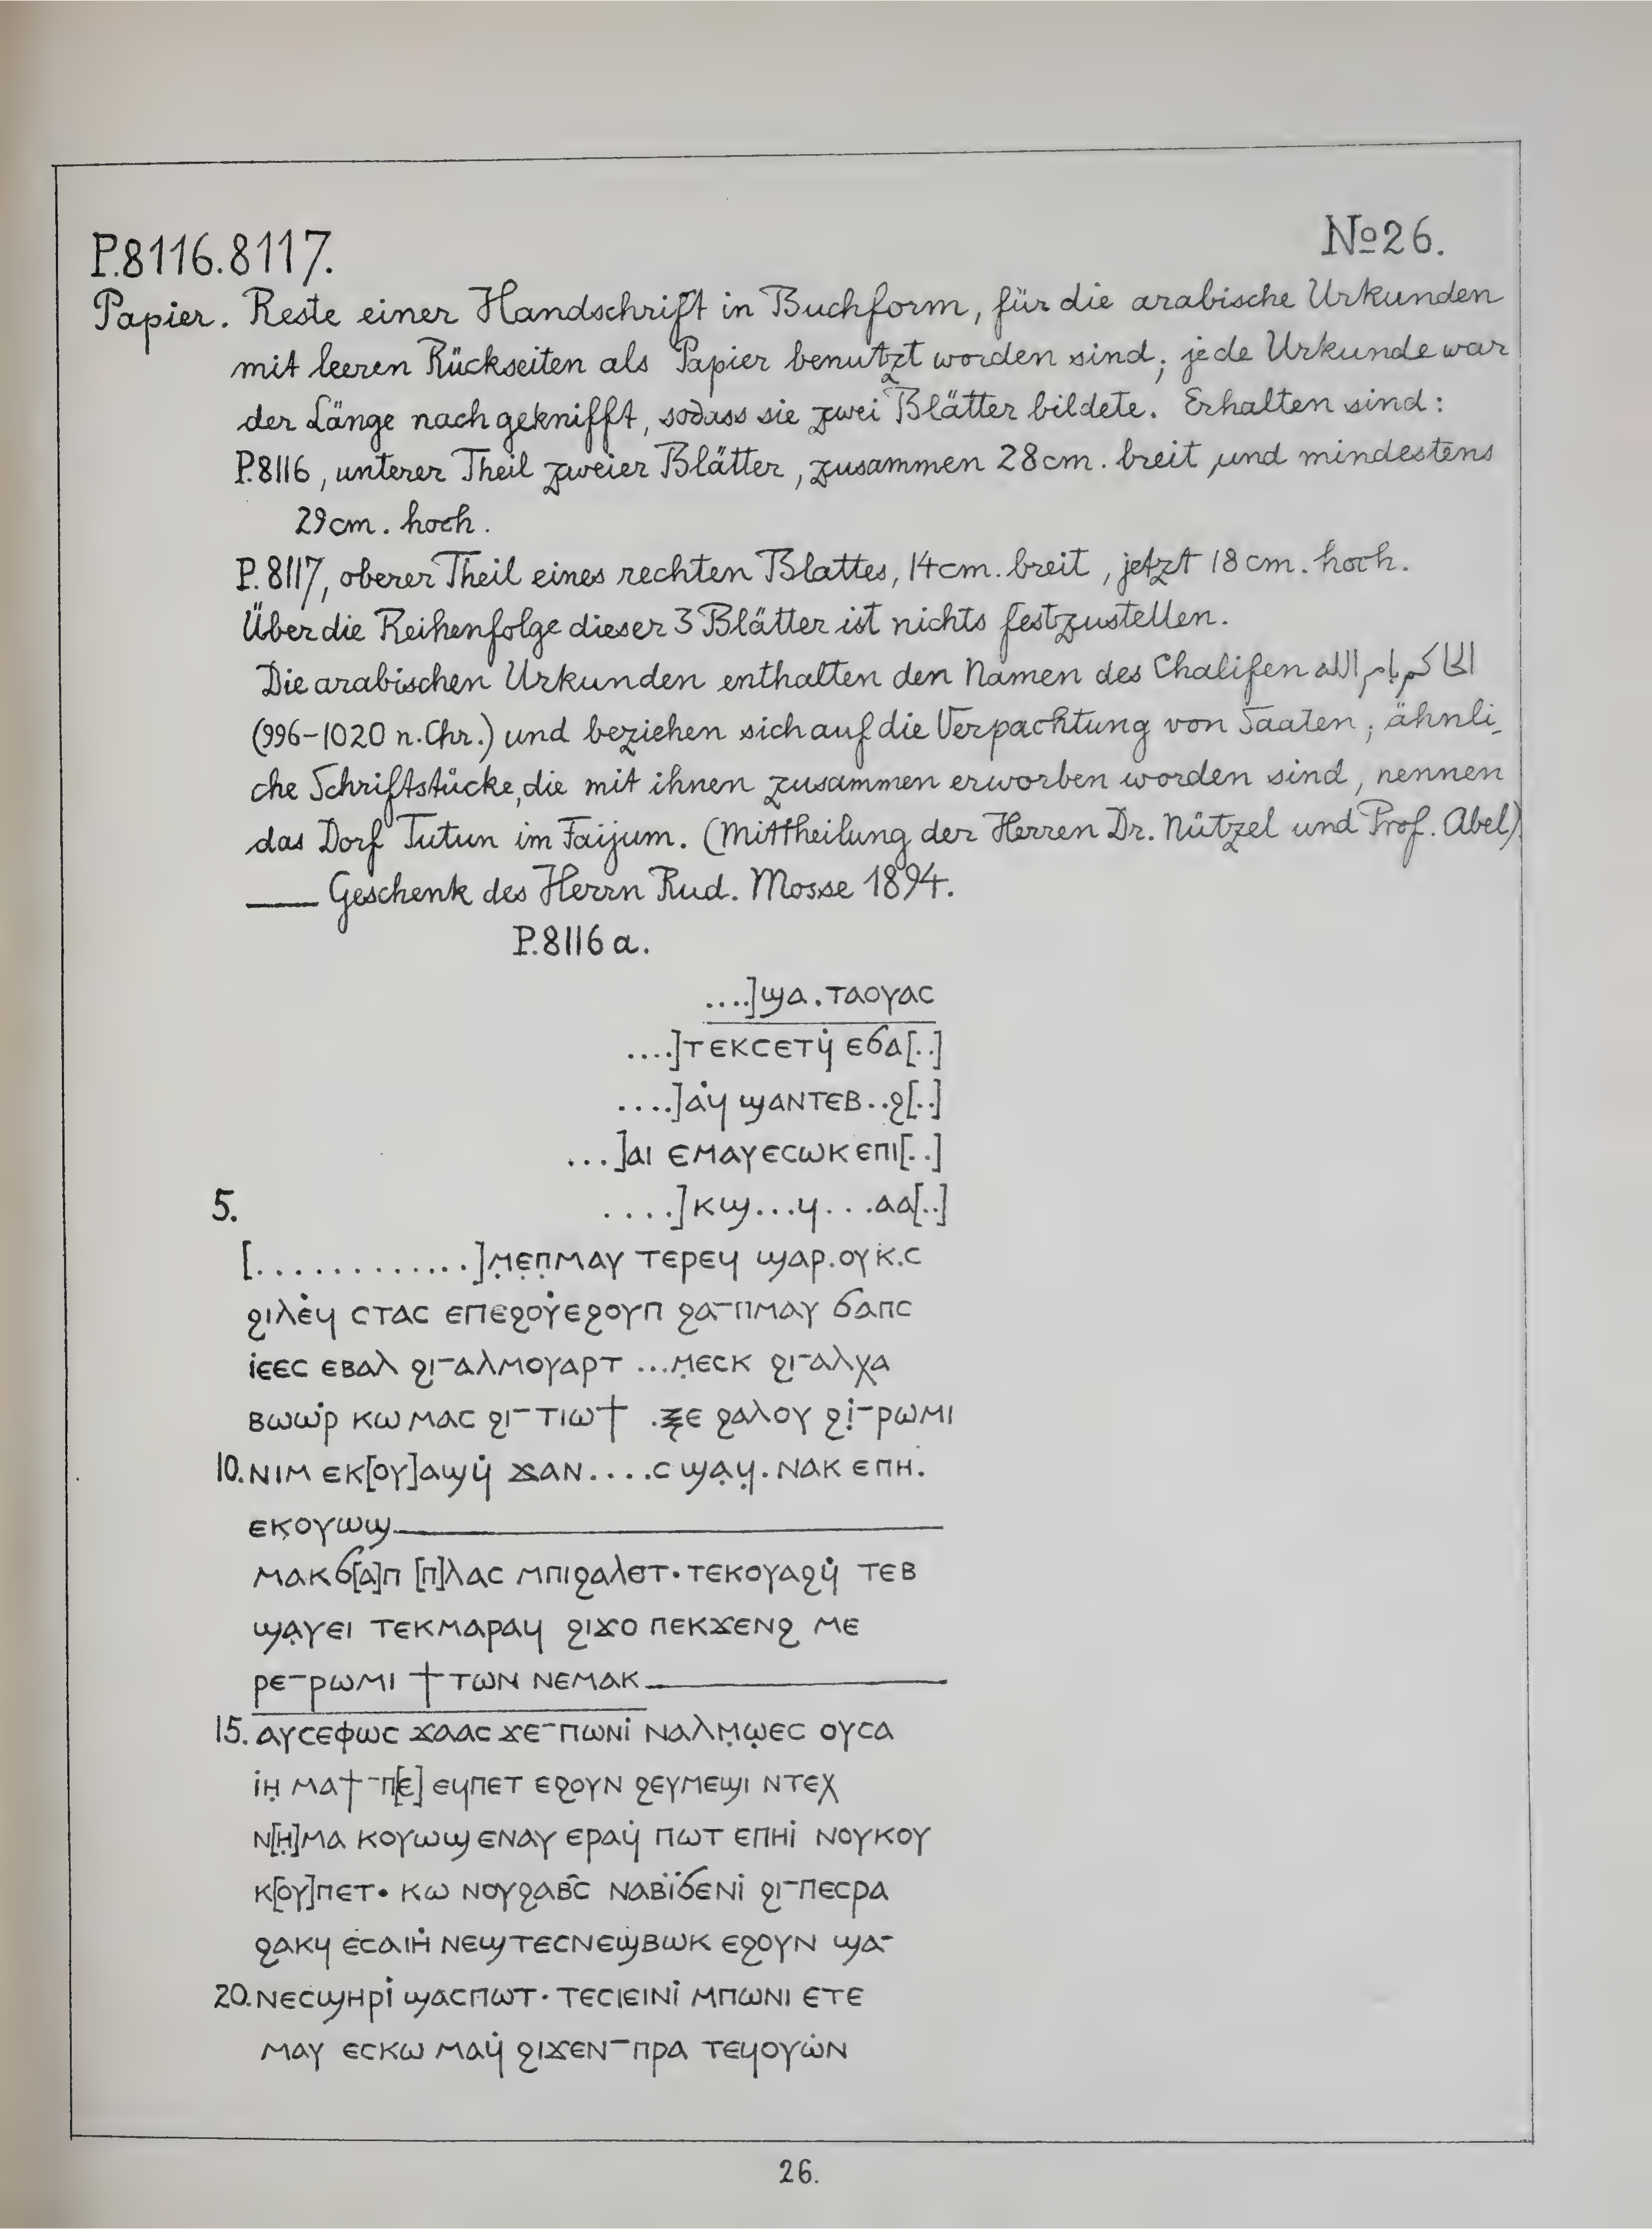 P.8116.8117.
No26.
Papier. Reste einer Handschrift in Buchform, für die arabische Urkunden
mit leeren Rückseiten als Papier benutzt worden sind; jede Urkunde war
der Länge nach geknifft, sodass sie zwei Blätter bildete. Erhalten sind:
P.8116, unterer Theil zweier Blätter, zusammen 28cm. breit und mindestens
29cm. hoch.
P.8117, oberer Theil eines rechten Blattes, 14cm. breit, jetzt 18cm. hoch.
Über die Reihenfolge dieser 3 Blätter ist nichts festzustellen.
Die arabischen Urkunden enthalten den Namen des Chalifen الحاكم بامر الله
(996-1020 n. Chr.) und beziehen sich auf die Verpachtung von Saaten; ähnli-
che Schriftstücke, die mit ihnen zusammen erworben worden sind, nennen
das Dorf Tutun im Faijum. (Mittheilung der Herren Dr. Nützel und Prof. Abel).
—— Geschenk des Herrn Rud. Mosse 1894.
P.8116 a.
....]ϣⲁ.ⲧⲁⲟⲩⲁⲥ
....]ⲧⲉⲕⲥⲉⲧϥ̇ ⲉϭⲁ[..]
....]ⲁ̇ϥ ϣⲁⲛⲧⲉⲃ..ϩ[..]
...]ⲁⲓ ⲉⲙⲁⲩⲉⲥⲱⲕ ⲉⲡⲓ[..]
5. ....]ⲕϣ...ϥ...ⲁⲁ[..]
[.............]ⲙ̣ⲉ̣ⲡ̣ⲙⲁⲩ ⲧⲉⲣⲉϥ ϣⲁⲣ.ⲟⲩⲕ̇.ⲥ
ϩⲓⲗⲉ̇ϥ ⲥⲧⲁⲥ ⲉⲡⲉϩⲟⲩ̇ⲉϩⲟⲩⲡ ϩⲁ-ⲡⲙⲁⲩ ϭⲁⲡⲥ
ⲓ̇ⲉⲉⲥ ⲉⲃⲁⲗ ϩⲓ-ⲁⲗⲙⲟⲩⲁⲣⲧ ...ⲙ̣ⲉⲥⲕ ϩⲓ-ⲁⲗⲭⲁ
ⲃⲱⲱ̇ⲣ ⲕⲱ ⲙⲁⲥ ϩⲓ-ⲧⲓⲱϯ .ⲝⲉ ϩⲁⲗⲟⲩ ϩⲓ̇-ⲣⲱⲙⲓ
10. ⲛⲓⲙ ⲉⲕ[ⲟⲩ]ⲁϣϥ̇ ϫⲁⲛ....ⲥ ϣⲁ̣ϥ̣. ⲛⲁⲕ ⲉⲡⲏ.
ⲉⲕ̣ⲟⲩⲱϣ
ⲙⲁⲕϭ[ⲁ]ⲡ [ⲡ]ⲗⲁⲥ ⲙⲡⲓϩⲁⲗⲉⲧ· ⲧⲉⲕⲟⲩⲁϩϥ̇ ⲧⲉⲃ
ϣⲁ̣ⲩⲉⲓ ⲧⲉⲕⲙⲁⲣⲁϥ ϩⲓϫⲟ ⲡⲉⲕϫⲉⲛϩ ⲙⲉ
ⲣⲉ-ⲣⲱⲙⲓ ϯⲧⲱⲛ ⲛⲉⲙⲁⲕ
15. ⲁⲩⲥⲉⲫⲱⲥ ϫⲁⲁⲥ ϫⲉ-ⲡⲱⲛⲓ̇ ⲛⲁⲗⲙ̣ⲱ̣ⲉⲥ ⲟⲩⲥⲁ
ⲓ̇ⲏ̣ ⲙⲁϯ-ⲡ[ⲉ] ⲉϥⲡⲉⲧ ⲉϩⲟⲩⲛ ϩⲉⲩⲙⲉϣⲓ ⲛⲧⲉⲭ
ⲛ[ⲏ̣]ⲙⲁ ⲕⲟⲩⲱϣ ⲉⲛⲁⲩ ⲉⲣⲁϥ̇ ⲡⲱⲧ ⲉⲡⲏⲓ̇ ⲛⲟⲩⲕⲟⲩ
ⲕ[ⲟⲩ]ⲡⲉⲧ· ⲕⲱ ⲛⲟⲩϩⲁⲃ̂ⲥ ⲛⲁⲃⲓ̈ϭⲉⲛⲓ̇ ϩⲓ-ⲡⲉⲥⲣⲁ
ϩⲁⲕϥ ⲉ̇ⲥⲁⲓⲏ̇ ⲛⲉϣⲧⲉⲥⲛⲉϣⲃⲱⲕ ⲉϩⲟⲩⲛ ϣⲁ-
20. ⲛⲉⲥϣⲏⲣⲓ̇ ϣⲁⲥⲡⲱⲧ· ⲧⲉⲥⲓⲉⲓⲛⲓ̇ ⲙⲡⲱⲛⲓ ⲉⲧⲉ
ⲙⲁⲩ ⲉⲥⲕⲱ ⲙⲁϥ̇ ϩⲓϫⲉⲛ-ⲡⲣⲁ ⲧⲉϥⲟⲩⲱ̇ⲛ
26.